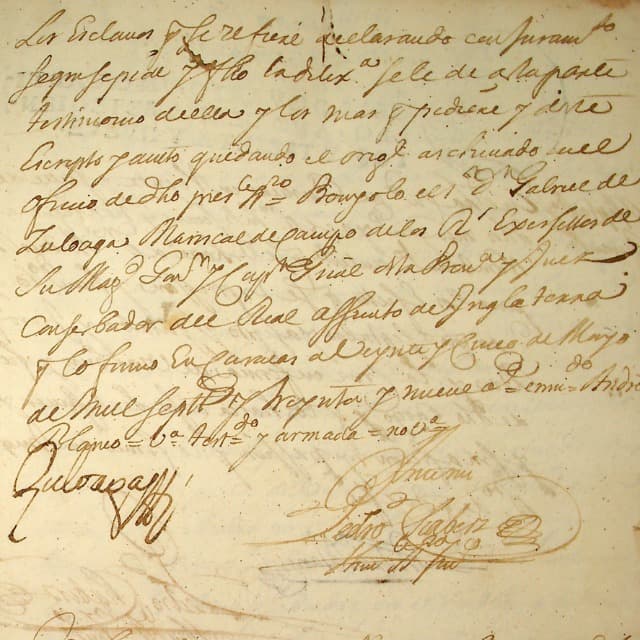 Los Esclavos q se refiere declarando con Juram.to
segun se pide y fho la dilix.a se le de a la parte
testimonio de ella y los mas q pidiere y de este
Escripto y auto quedando el orig.l archivado en el
oficio de dho pres.te ss.no Proveyolo el s.r D.n Gabriel de
Zuloaga Mariscal de campo de los R.s Exersitos de
Su Mag.d Gov.r y Cap.n Gral de la Prov.a y Juez
Conserbador del Real assiento de Inglaterra
q lo firmo En Caracas a Veynte y Cinco de Mayo
de Mill Sept.s y treynta y nueve a.s = enm.do =
= y armada = no v.e
Zuloaga
Antemi
Pedro